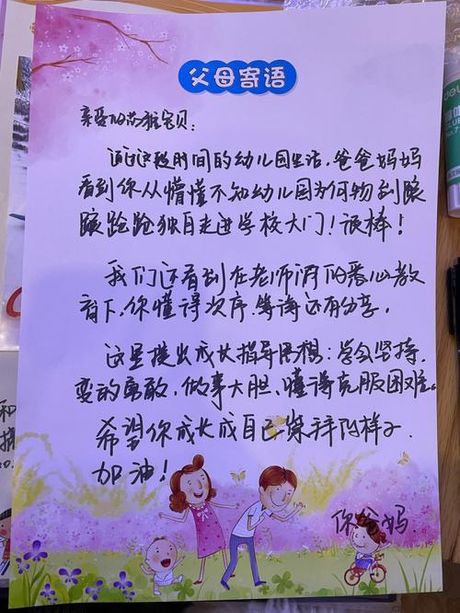 父母寄语
亲爱的芯雅宝贝：
通过这段时间的幼儿园生活，爸爸妈妈
看到你从懵懂不知幼儿园为何物到蹑
蹑跄跄独自走进学校大门！很棒！
我们还看到在老师们的悉心教
育下，你懂得次序，等待还有分享。
这里提出成长指导思想：学会坚持，
变的勇敢，做事大胆，懂得克服困难。
希望你成长成自己崇拜的样子
加油！
你爸妈